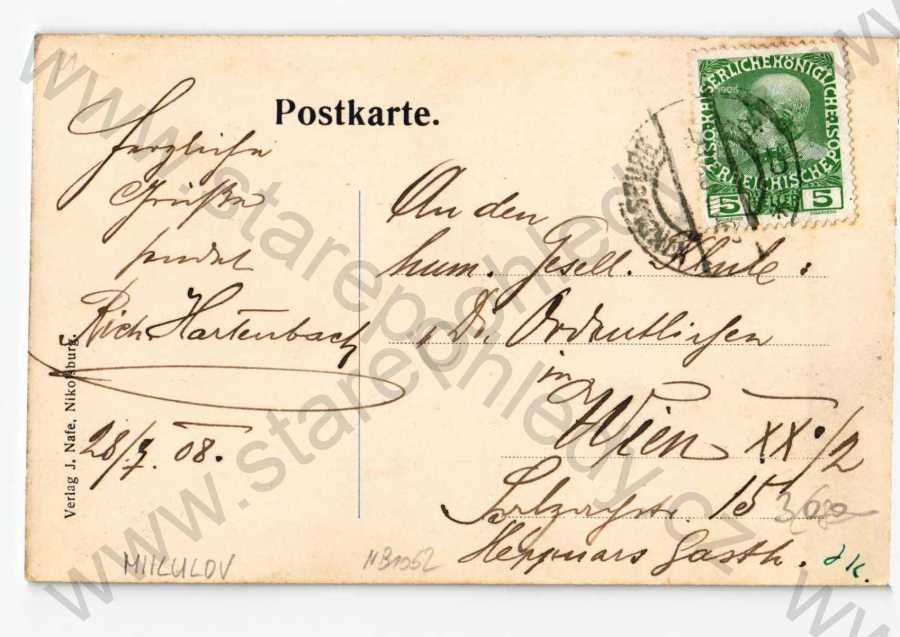 Postkarte.
Herzliche
Grüße
sendet
Rich Hartenbach
28/7. 08.
Verlag J. Nafe, Nikolsburg.
An den
hum. Gesell. Schule:
"Die Ordentlichen
in
Wien XX./2
15
Gasth.
KAISERLICHE KÖNIGLICHE ÖSTERREICHISCHE POST
1908
5 HELLER 5
NIKOLSBURG
MIKULOV
NB1052
www.starepohledy.cz